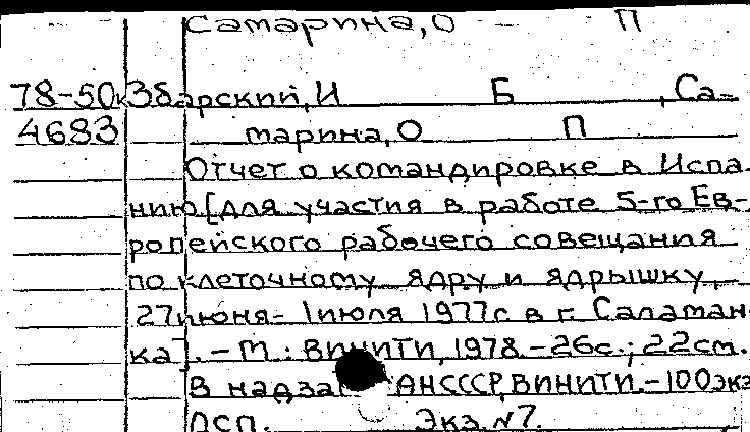 Самарина, О - П
78-50к Збарский, И Б , Са-
4683 марина, О П
Отчет о командировке в Испа-
нию [для участия в работе 5-го Ев-
ропейского рабочего совещания
по клеточному ядру и ядрышку,
27 июня - 1 июля 1977г. в г. Саламан-
ка]. - М : ВИНИТИ, 1978. - 26с. ; 22см.
В АНСССР, ВИНИТИ. - 100экз
Экз. №7.